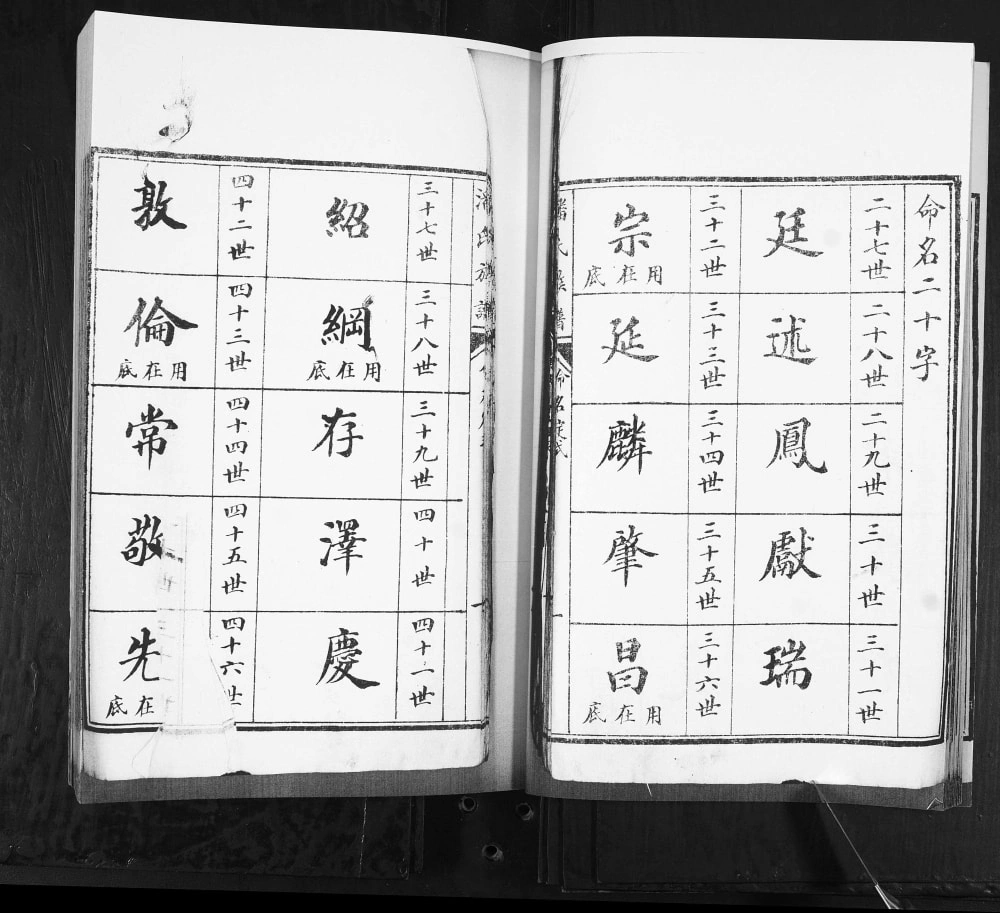 命名二十字
二十七世 二十八世 二十九世 三十世 三十一世
廷 述 鳳 獻 瑞
三十二世 三十三世 三十四世 三十五世 三十六世
宗 用在底 延 麟 肇 昌 用在底
潘氏族譜 命名
潘氏族譜
三十七世 三十八世 三十九世 四十世 四十一世
紹 綱 用在底 存 澤 慶
四十二世 四十三世 四十四世 四十五世 四十六世
敦 倫 用在底 常 敬 先 在底